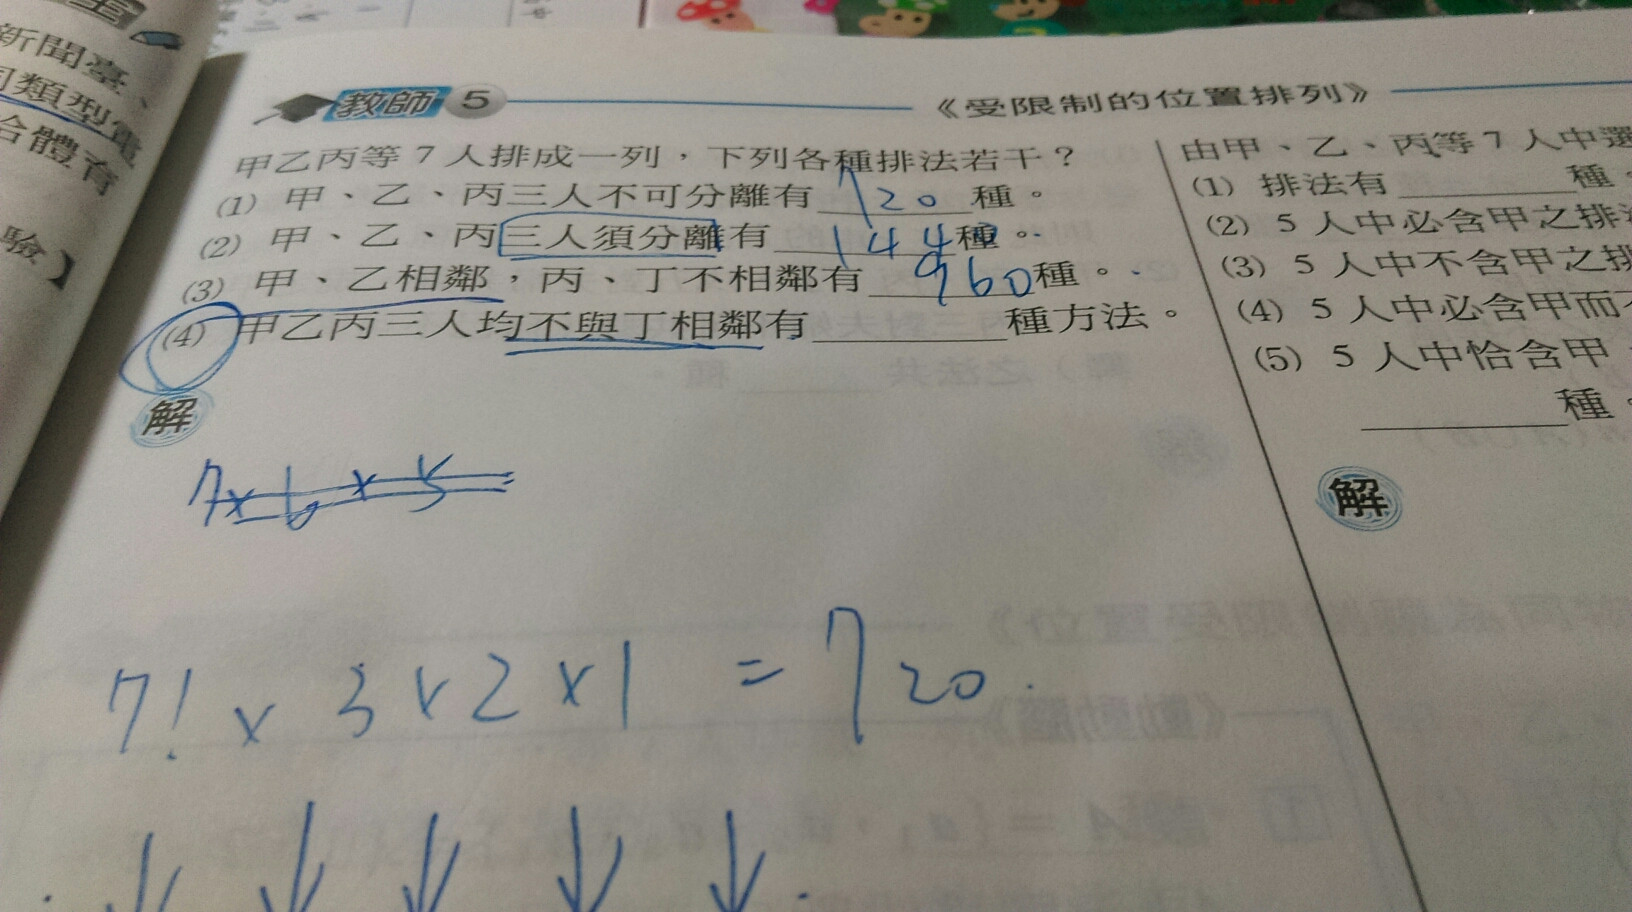 新聞臺、
類型電
合體育
驗】
教師 5 《受限制的位置排列》
甲乙丙等 7 人排成一列，下列各種排法若干？
(1) 甲、乙、丙三人不可分離有 720 種。
(2) 甲、乙、丙三人須分離有 1440 種。
(3) 甲、乙相鄰，丙、丁不相鄰有 960 種。
(4) 甲乙丙三人均不與丁相鄰有______種方法。
解
7×6×5=
7! × 3×2×1 = 720.
由甲、乙、丙等 7 人中選
(1) 排法有______種。
(2) 5 人中必含甲之排
(3) 5 人中不含甲之排
(4) 5 人中必含甲而
(5) 5 人中恰含甲
______種。
解